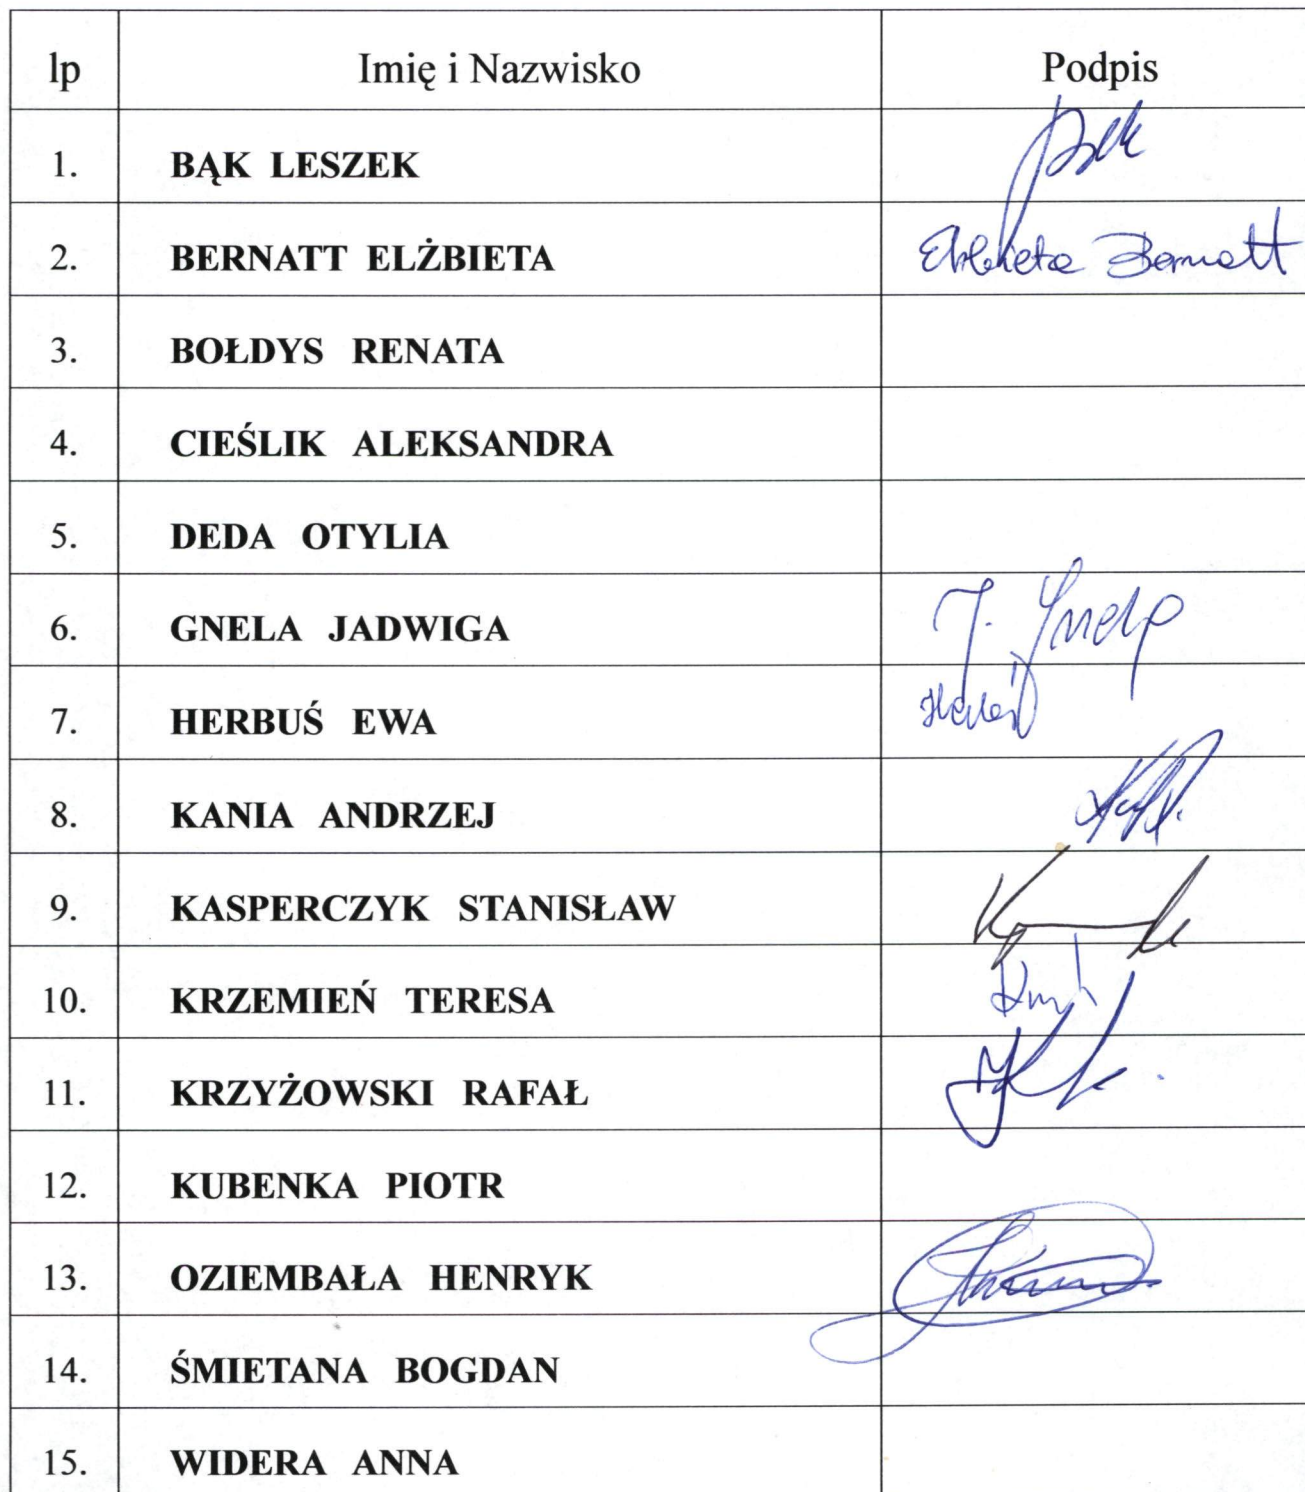 lp Imię i Nazwisko Podpis
1. BĄK LESZEK
2. BERNATT ELŻBIETA Elżbieta Bernatt
3. BOŁDYS RENATA
4. CIEŚLIK ALEKSANDRA
5. DEDA OTYLIA
6. GNELA JADWIGA J. Gnela
7. HERBUŚ EWA
8. KANIA ANDRZEJ
9. KASPERCZYK STANISŁAW
10. KRZEMIEŃ TERESA
11. KRZYŻOWSKI RAFAŁ
12. KUBENKA PIOTR
13. OZIEMBAŁA HENRYK
14. ŚMIETANA BOGDAN
15. WIDERA ANNA